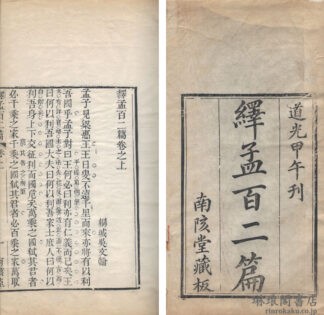 道光甲午刊
繹孟百二篇
南陔堂藏板
繹孟百二篇卷之上
孟子見梁惠王王曰叟不遠千里而來亦將有以利
吾國乎孟子對曰王何必曰利亦有仁義而已矣王
曰何以利吾國大夫曰何以利吾家士庶人曰何以
利吾身上下交征利而國危矣萬乘之國弑其君者
必千乘之家千乘之國弑其君者必百乘之家萬取
琳琅閣書店
rinrokaku.co.jp